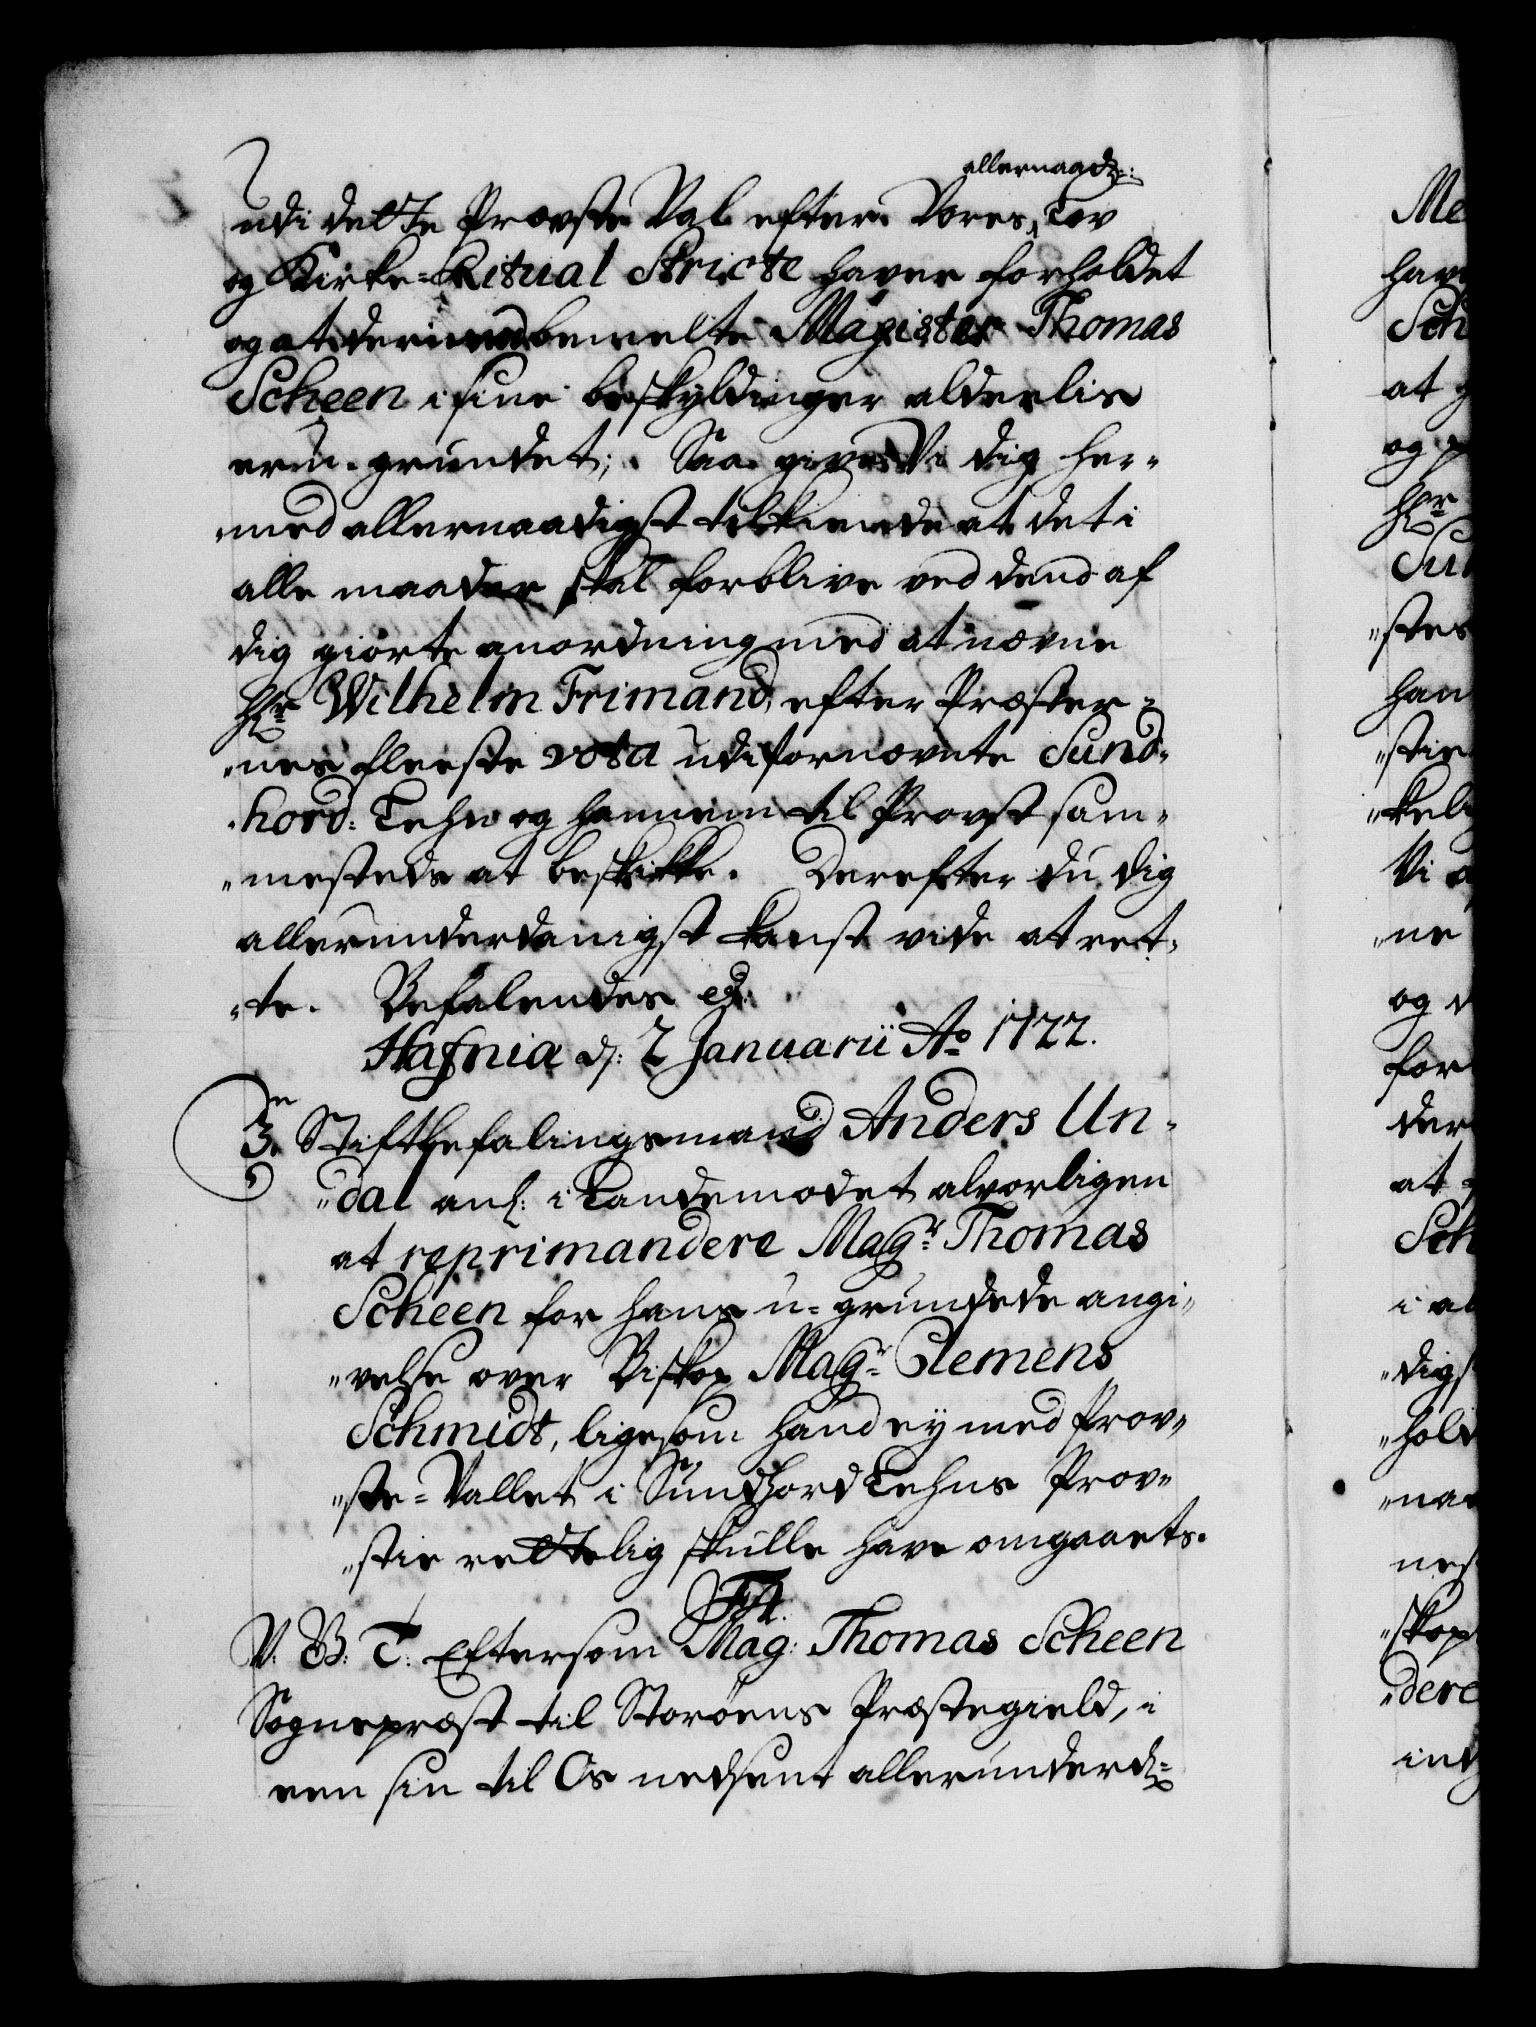 allernaadste:
udi dette Provste Val efter Vores Lov
og Kirke-Ritual Stricte haver forholdet
og at derimod bemelte Magister Thomas
Scheen i sine beskyldninger alderlis
er u-grundet; Saa give Vi dig her-
med allernaadigst tilkiende at det i
alle maader skal forblive ved dend af
dig giorte anordning med at nævne
Hr Wilhelm Frimand, efter Præster-
nes fleeste vota udi fornævnte Sund-
hord: Lehn og hannem til Provst sam-
mesteds at beskikke. Derefter du dig
allerunderdanigst kanst vide at ret-
te. Befalendes etc:
Hafnia d: 2 Januarii Ao 1722.
3. Stiftbefalingsmand Anders Un-
dal anl: i Landemodet alvorligen
at reprimandere Magr Thomas
Scheen for hans u-grundede angi-
velse over Biskop Magr Clemens
Schmidt, ligesom hand ey med Prov-
ste-Vallet i Sundhordlehns Prov-
stie rettelig skulle have omgaaets.
F4.
V. G: T: Eftersom Mag: Thomas Scheen
Sognepræst til Storøens Præstegield, i
een sin til Os nedsent allerunderd:
Me
hav
Sch
at
og
Hr
Su
stes
han
stie
kel
Vi
ne
og
for
der
at
Sch
i al
digs
hold
na
nes
skop
dere
ind